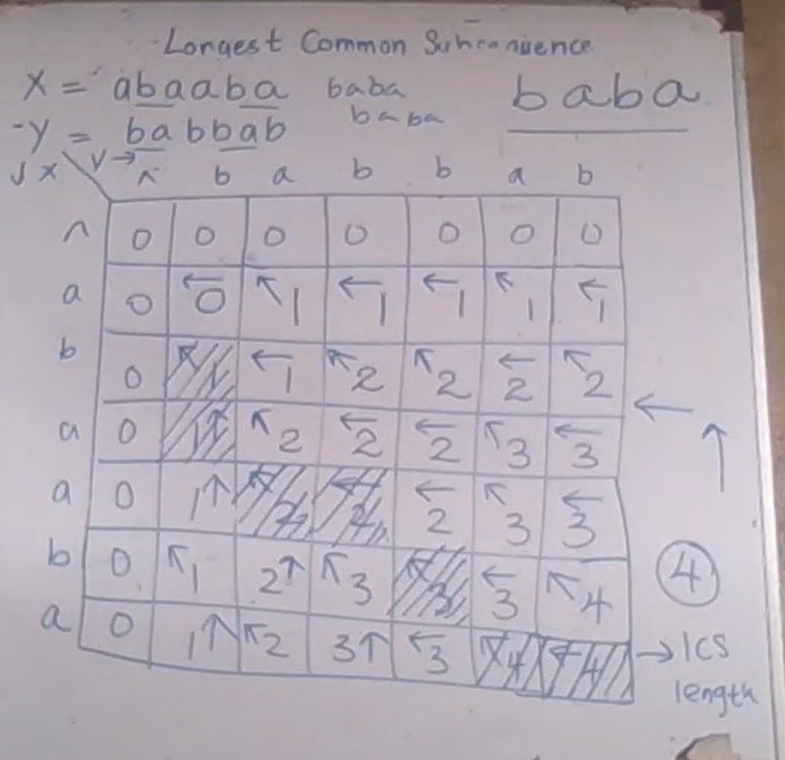 Longest Common Subsequence
X = abaaba baba baba
Y = babbab baba
↓ X Y → ^ b a b b a b
^ 0 0 0 0 0 0 0
a 0 ←0 ↖1 ←1 ←1 ↖1 ←1
b 0 ↖1 ←1 ↖2 ↖2 ←2 ↖2 ←
a 0 1↑ ↖2 ←2 ←2 ↖3 ←3 ↑
a 0 1↑ ↖2 ←2 ←2 ↖3 ←3
b 0 ↖1 2↑ ↖3 ↖3 ←3 ↖4 4
a 0 1↑ ↖2 3↑ ←3 ↖4 ←4 → lCS
length